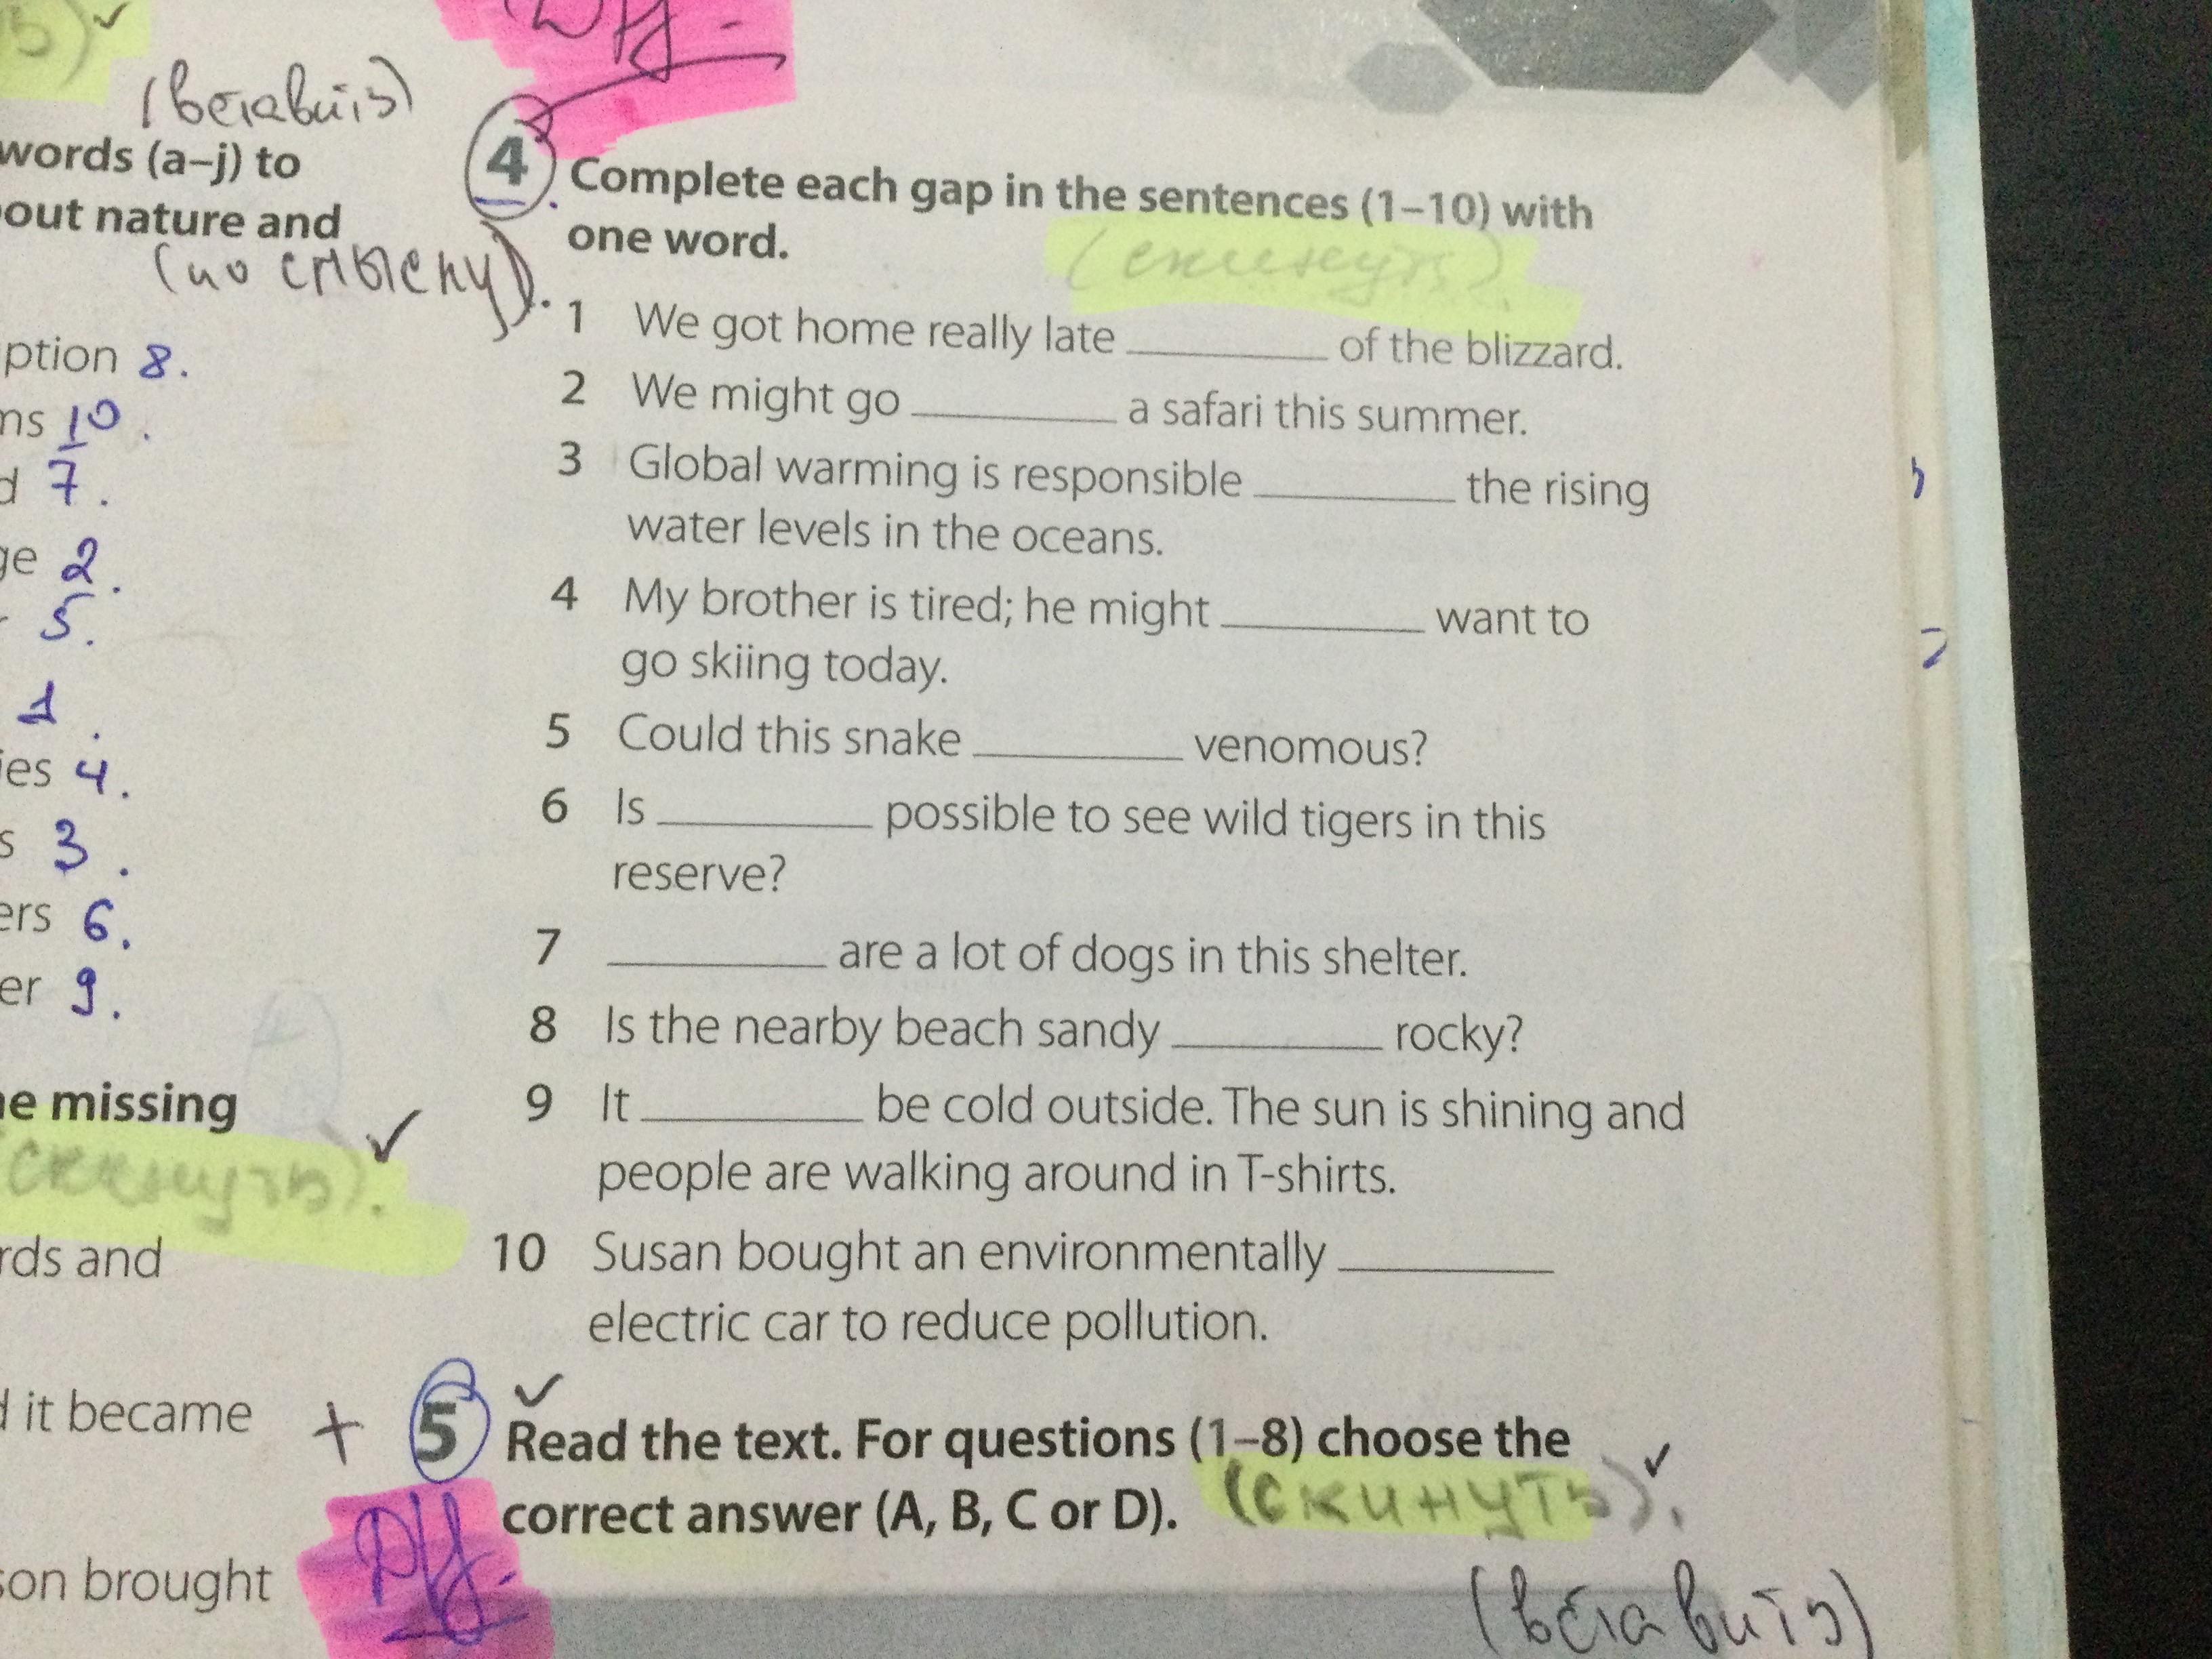 (вставить)
words (a–j) to
out nature and
(по смыслу).
ption 8.
ns 10.
d 7.
ge 2.
r 5.
1.
ies 4.
s 3.
ers 6.
er 9.
e missing
(скинуть).
rds and
it became
son brought
Д/з.
4. Complete each gap in the sentences (1–10) with
one word.
(скинуть).
1 We got home really late ________ of the blizzard.
2 We might go ________ a safari this summer.
3 Global warming is responsible ________ the rising
water levels in the oceans.
4 My brother is tired; he might ________ want to
go skiing today.
5 Could this snake ________ venomous?
6 Is ________ possible to see wild tigers in this
reserve?
7 ________ are a lot of dogs in this shelter.
8 Is the nearby beach sandy ________ rocky?
9 It ________ be cold outside. The sun is shining and
people are walking around in T-shirts.
10 Susan bought an environmentally ________
electric car to reduce pollution.
+ 5 Read the text. For questions (1–8) choose the
correct answer (A, B, C or D). (скинуть).
Д/з.
(вставить)